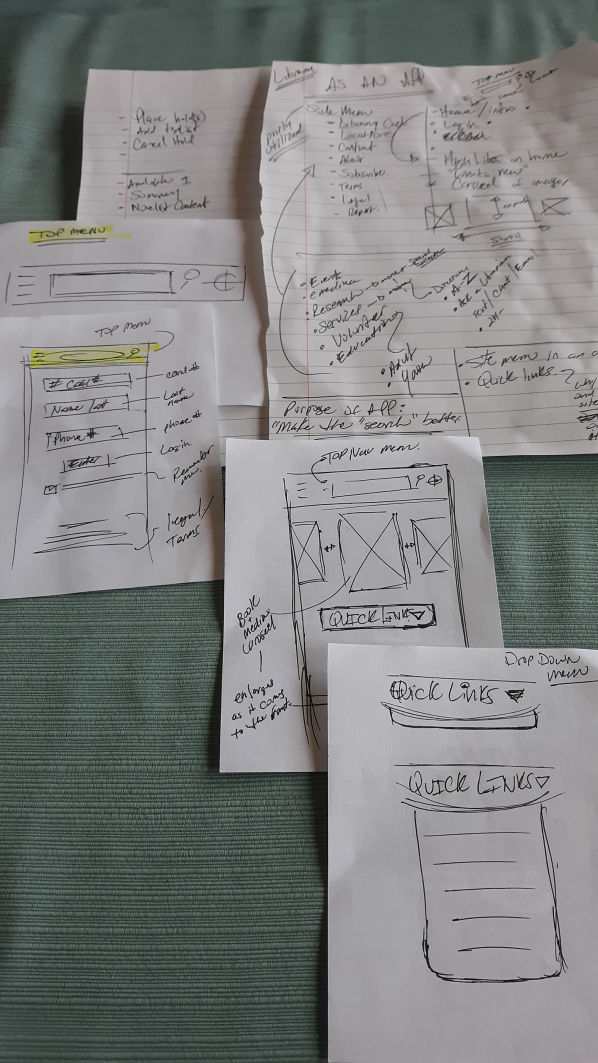 - Place hold(s)
- Add to list
- Cancel Hold
- Available ?
- Summary
- Novelist Content
TOP MENU
Library
AS AN APP
Side Menu
- Library Card
- Locations
- Contact
- About
- Subscribe
- Terms
- Legal
- Report
TOP menu
• Home/intro •
• Login
High Lites on home
"What's new"
Carousel of images
SCROLL
• Events
• emedia
• Research
• Services
• Volunteer
• Educational
• A-Z
• Adult
• Youth
• Site menu in an
• Quick links
Purpose of App:
"Make the "search" better.
TOP Menu
# Card #
card #
Name Last
Last name
Phone #
phone #
Enter
Login
Remember me
Legal/
Terms
TOP Nav menu.
QUICK LINKS
Book
+
media
carousel
enlarges
as it comes
to the front.
DROP DOWN
menu
Quick Links
QUICK LINKS